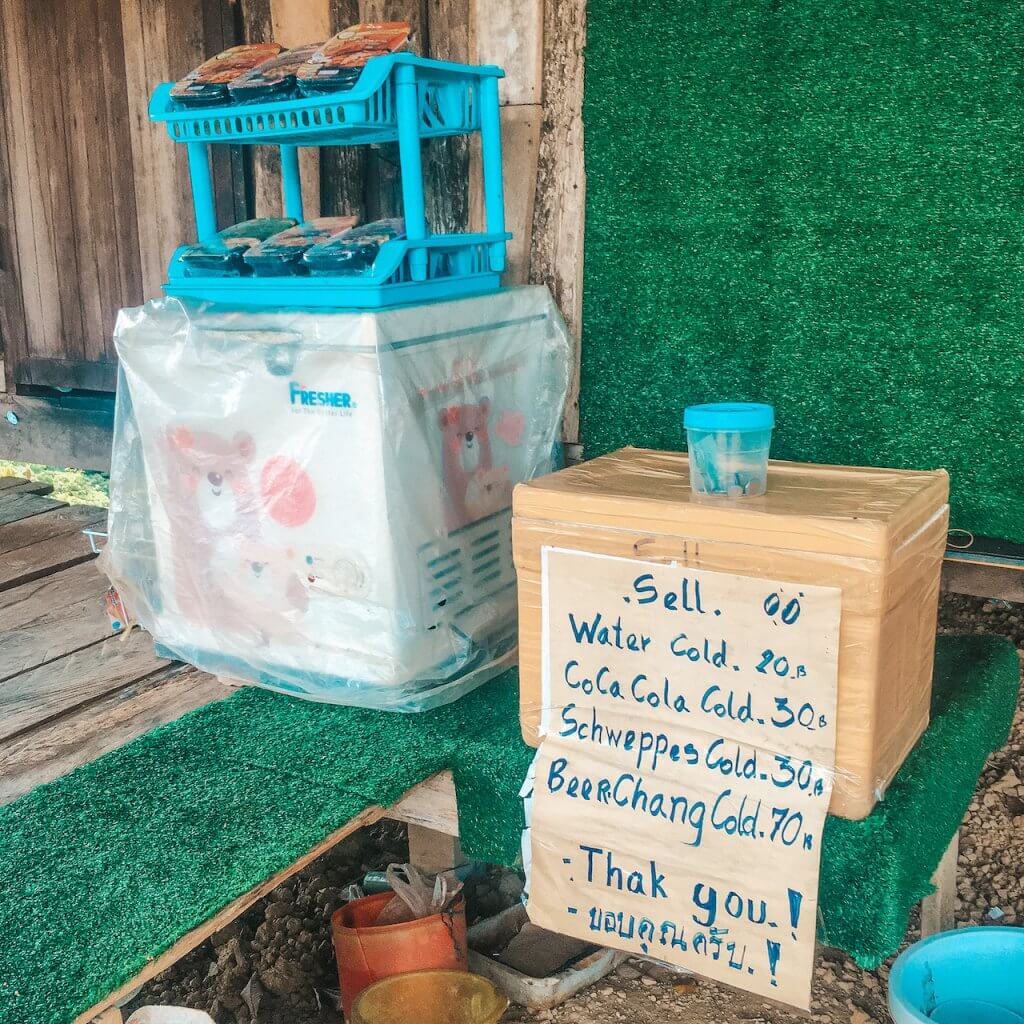 FRESHER
For The Better Life
.Sell.
Water Cold. 20.B
CoCa Cola Cold. 30B
Schweppes Cold. 30.B
BeeR.Chang Cold. 70 B
- Thak you.!
- ขอบคุณครับ.!